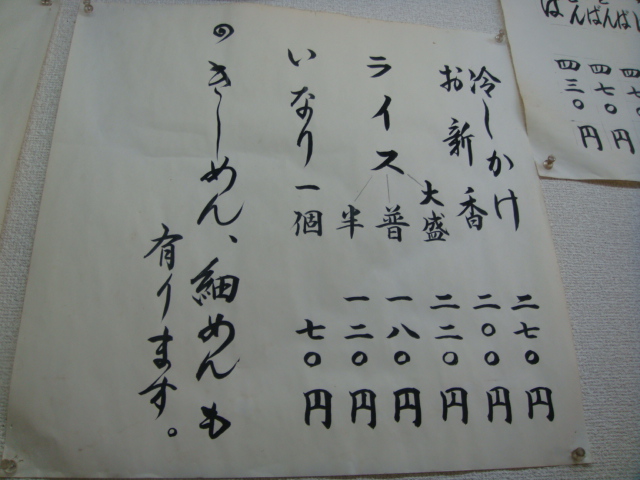 冷しかけ 二七〇円
お新香 二〇〇円
ライス 大盛 二二〇円
普 一八〇円
半 一二〇円
いなり一個 七〇円
のきしめん、細めんも
有ります。
四三〇円
四七〇円